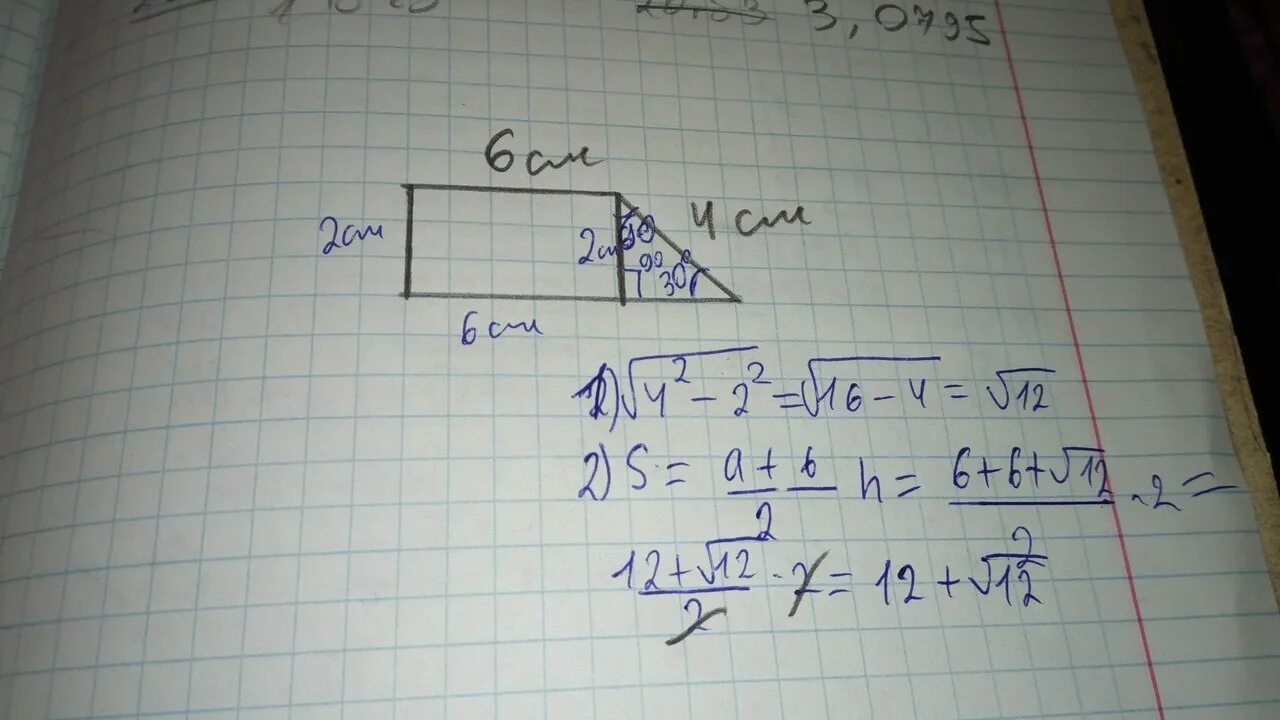 3,0795
6 см
2см
2см
60
4 см
90
30°
6 см
1) √4² - 2² = √16 - 4 = √12
2) S = a + b / 2 h = 6 + 6 + √12 / 2 · 2 =
12 + √12 / 2 · 2 = 12 + √12